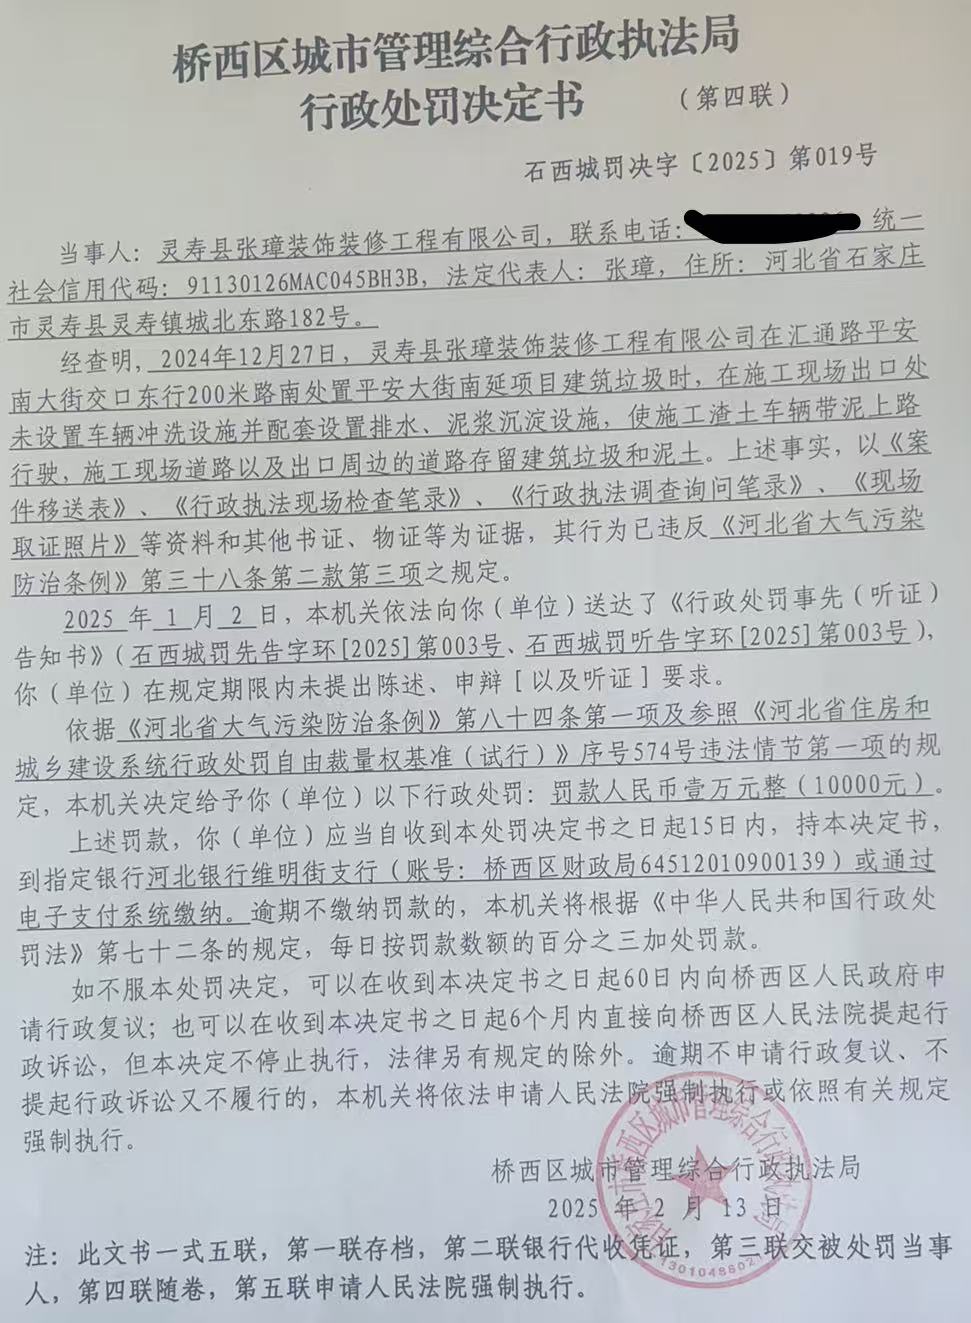 桥西区城市管理综合行政执法局
行政处罚决定书 （第四联）
石西城罚决字〔2025〕第019号
当事人：灵寿县张璋装饰装修工程有限公司，联系电话： 统一
社会信用代码：91130126MAC045BH3B，法定代表人：张璋，住所：河北省石家庄
市灵寿县灵寿镇城北东路182号。
经查明，2024年12月27日，灵寿县张璋装饰装修工程有限公司在汇通路平安
南大街交口东行200米路南处置平安大街南延项目建筑垃圾时，在施工现场出口处
未设置车辆冲洗设施并配套设置排水、泥浆沉淀设施，使施工渣土车辆带泥上路
行驶，施工现场道路以及出口周边的道路存留建筑垃圾和泥土。上述事实，以《案
件移送表》、《行政执法现场检查笔录》、《行政执法调查询问笔录》、《现场
取证照片》等资料和其他书证、物证等为证据，其行为已违反《河北省大气污染
防治条例》第三十八条第二款第三项之规定。
2025 年 1 月 2 日，本机关依法向你（单位）送达了《行政处罚事先（听证）
告知书》（石西城罚先告字环[2025]第003号、石西城罚听告字环[2025]第003号），
你（单位）在规定期限内未提出陈述、申辩［以及听证］要求。
依据《河北省大气污染防治条例》第八十四条第一项及参照《河北省住房和
城乡建设系统行政处罚自由裁量权基准（试行）》序号574号违法情节第一项的规
定，本机关决定给予你（单位）以下行政处罚：罚款人民币壹万元整（10000元）。
上述罚款，你（单位）应当自收到本处罚决定书之日起15日内，持本决定书，
到指定银行河北银行维明街支行（账号：桥西区财政局64512010900139）或通过
电子支付系统缴纳。逾期不缴纳罚款的，本机关将根据《中华人民共和国行政处
罚法》第七十二条的规定，每日按罚款数额的百分之三加处罚款。
如不服本处罚决定，可以在收到本决定书之日起60日内向桥西区人民政府申
请行政复议；也可以在收到本决定书之日起6个月内直接向桥西区人民法院提起行
政诉讼，但本决定不停止执行，法律另有规定的除外。逾期不申请行政复议、不
提起行政诉讼又不履行的，本机关将依法申请人民法院强制执行或依照有关规定
强制执行。
桥西区城市管理综合行政执法局
2025 年 2 月 13 日
注：此文书一式五联，第一联存档，第二联银行代收凭证，第三联交被处罚当事
人，第四联随卷，第五联申请人民法院强制执行。